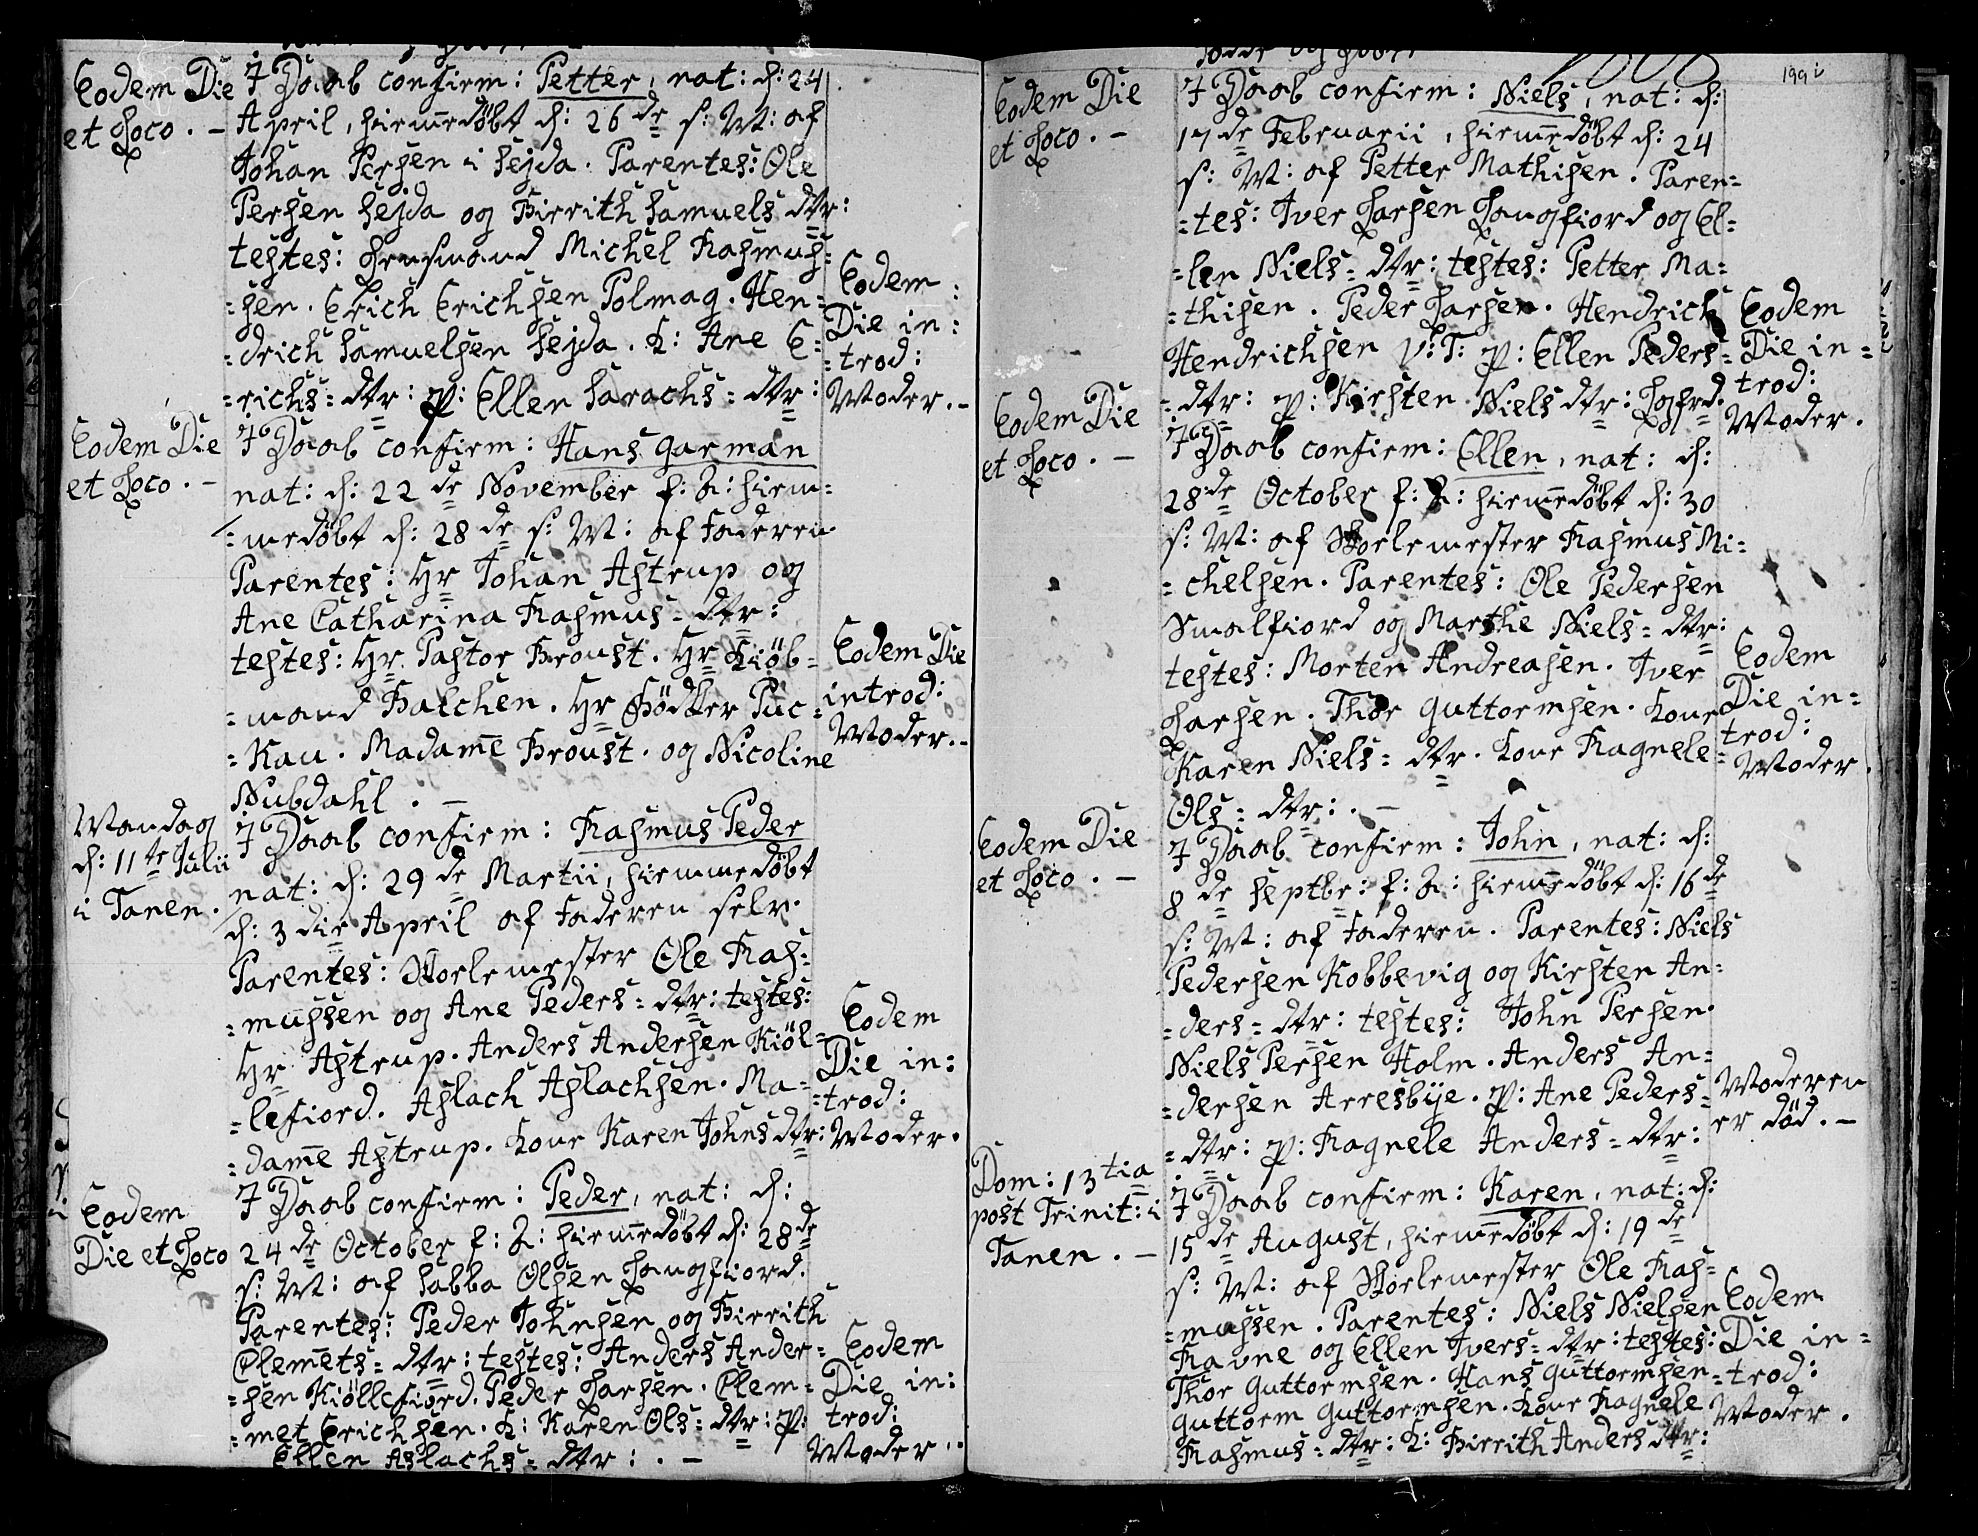 Eodem Die
et Loco. –
J Daab confirm: Petter, nat: d: 24
April, hiem̄edöbt d: 26 de s: M: af
Johan Persen i Sejda. Parentes: Ole
Persen Sejda og Birrith Samuels dtr:
testes: Lensmand Michel Rasmus=
=sen. Erich Erichsen Polmag. Hen=
=drich Samuelsen Sejda. K: Ane E=
=richs= dtr: p: Ellen Sarachs= dtr:
Eodem
Die in=
=trod:
Moder. –
Eodem Die
et Loco. –
J Daab confirm: Hans Garman
nat: d: 22 de November f: A: hiem=
=medöbt d: 28 de s: M: af Faderen
Parentes: Hr Johan Astrup og
Ane Catharina Rasmus= dtr:
testes: Hr Pastor Broust. Hr Kiöb=
=mand Balchen. Hr Bödker Puc=
=Kau. Madam̄e Broust. og Nicoline
Nubdahl. –
Eodem Die
introd:
Moder. –
Mandag
d: 11 te Julii
i Tanen.
J Daab confirm: Rasmus Peder
nat: d: 29 de Martii, hiemmedöbt
d: 3 die April af Faderen selv.
Parentes: Skolemester Ole Ras=
=mussen og Ane Peders= dtr: testes:
Hr Astrup. Anders Andersen Kiöl=
=lefiord. Aslach Aslachsen. Ma=
=dam̄e Astrup. Kone Karen Johns dtr:
Eodem
Die in=
=trod:
Moder.
Eodem
Die et Loco
J Daab confirm: Peder, nat: d:
24 de October f: A: hiem̄edöbt d: 28 de
s: M: af Sabba Olsen Langfiord.
Parentes: Peder Johnsen og Birrith
Clemets= dtr: testes: Anders Ander=
=sen Kiöllefiord. Peder Larsen. Clem=
=met Erichsen. K: Karen Ols= dtr: p:
Ellen Aslachs= dtr: . –
Eodem
Die in=
trod:
Moder.
199
Eodem Die
et Loco. –
J Daab confirm: Niels, nat: d:
17 de Februarii, hiem̄edöbt d: 24
s: M: af Petter Mathisen. Paren=
=tes: Iver Larsen Langfiord og El=
=len Niels= dtr: testes: Petter Ma=
=thisen. Peder Larsen. Hendrich
Hendrichsen p: Ellen Peders=
=dtr: p: Kirsten Niels dtr:
Eodem
Die in=
trod:
Moder.
Eodem Die
et Loco. –
J Daab confirm: Ellen, nat: d:
28 de October f: A: hiem̄edöbt d: 30
s: M: af Skolemester Rasmus Mi=
=chelsen. Parentes: Ole Pedersen
Smalfiord og Marthe Niels= dtr:
testes: Morten Andreasen. Iver
Larsen. Thor Guttormsen. Kone
Karen Niels= dtr. Kone Ragnele
Ols= dtr: . –
Eodem
Die in=
trod:
Moder.
Eodem Die
et Loco. –
J Daab confirm: John, nat: d:
8 de Septbr: f: A: hiem̄edöbt d: 16 de
s: M: af Faderen. Parentes: Niels
Pedersen Kobbevig og Kirsten An=
=ders= dtr: testes: John Persen.
Niels Persen Holm. Anders An=
=dersen Arresbye. p: Ane Peders=
=dtr: p: Ragnele Anders= dtr:
Moderen
er död. –
Dom: 13 tia
post Trinit: i
Tanen. –
J Daab confirm: Karen, nat: d:
15 de August, hiem̄edöbt d: 19 de
s: M: af Skolemester Ole Ras=
=mussen. Parentes: Niels Nielsen
Ravne og Ellen Ivers= dtr: testes:
Thor Guttormsen. Hans Guttormsen
Guttorm Guttormsen. Kone Ragnele
Rasmus= dtr: K: Birrith Anders dtr:
Eodem
Die in=
=trod:
Moder.